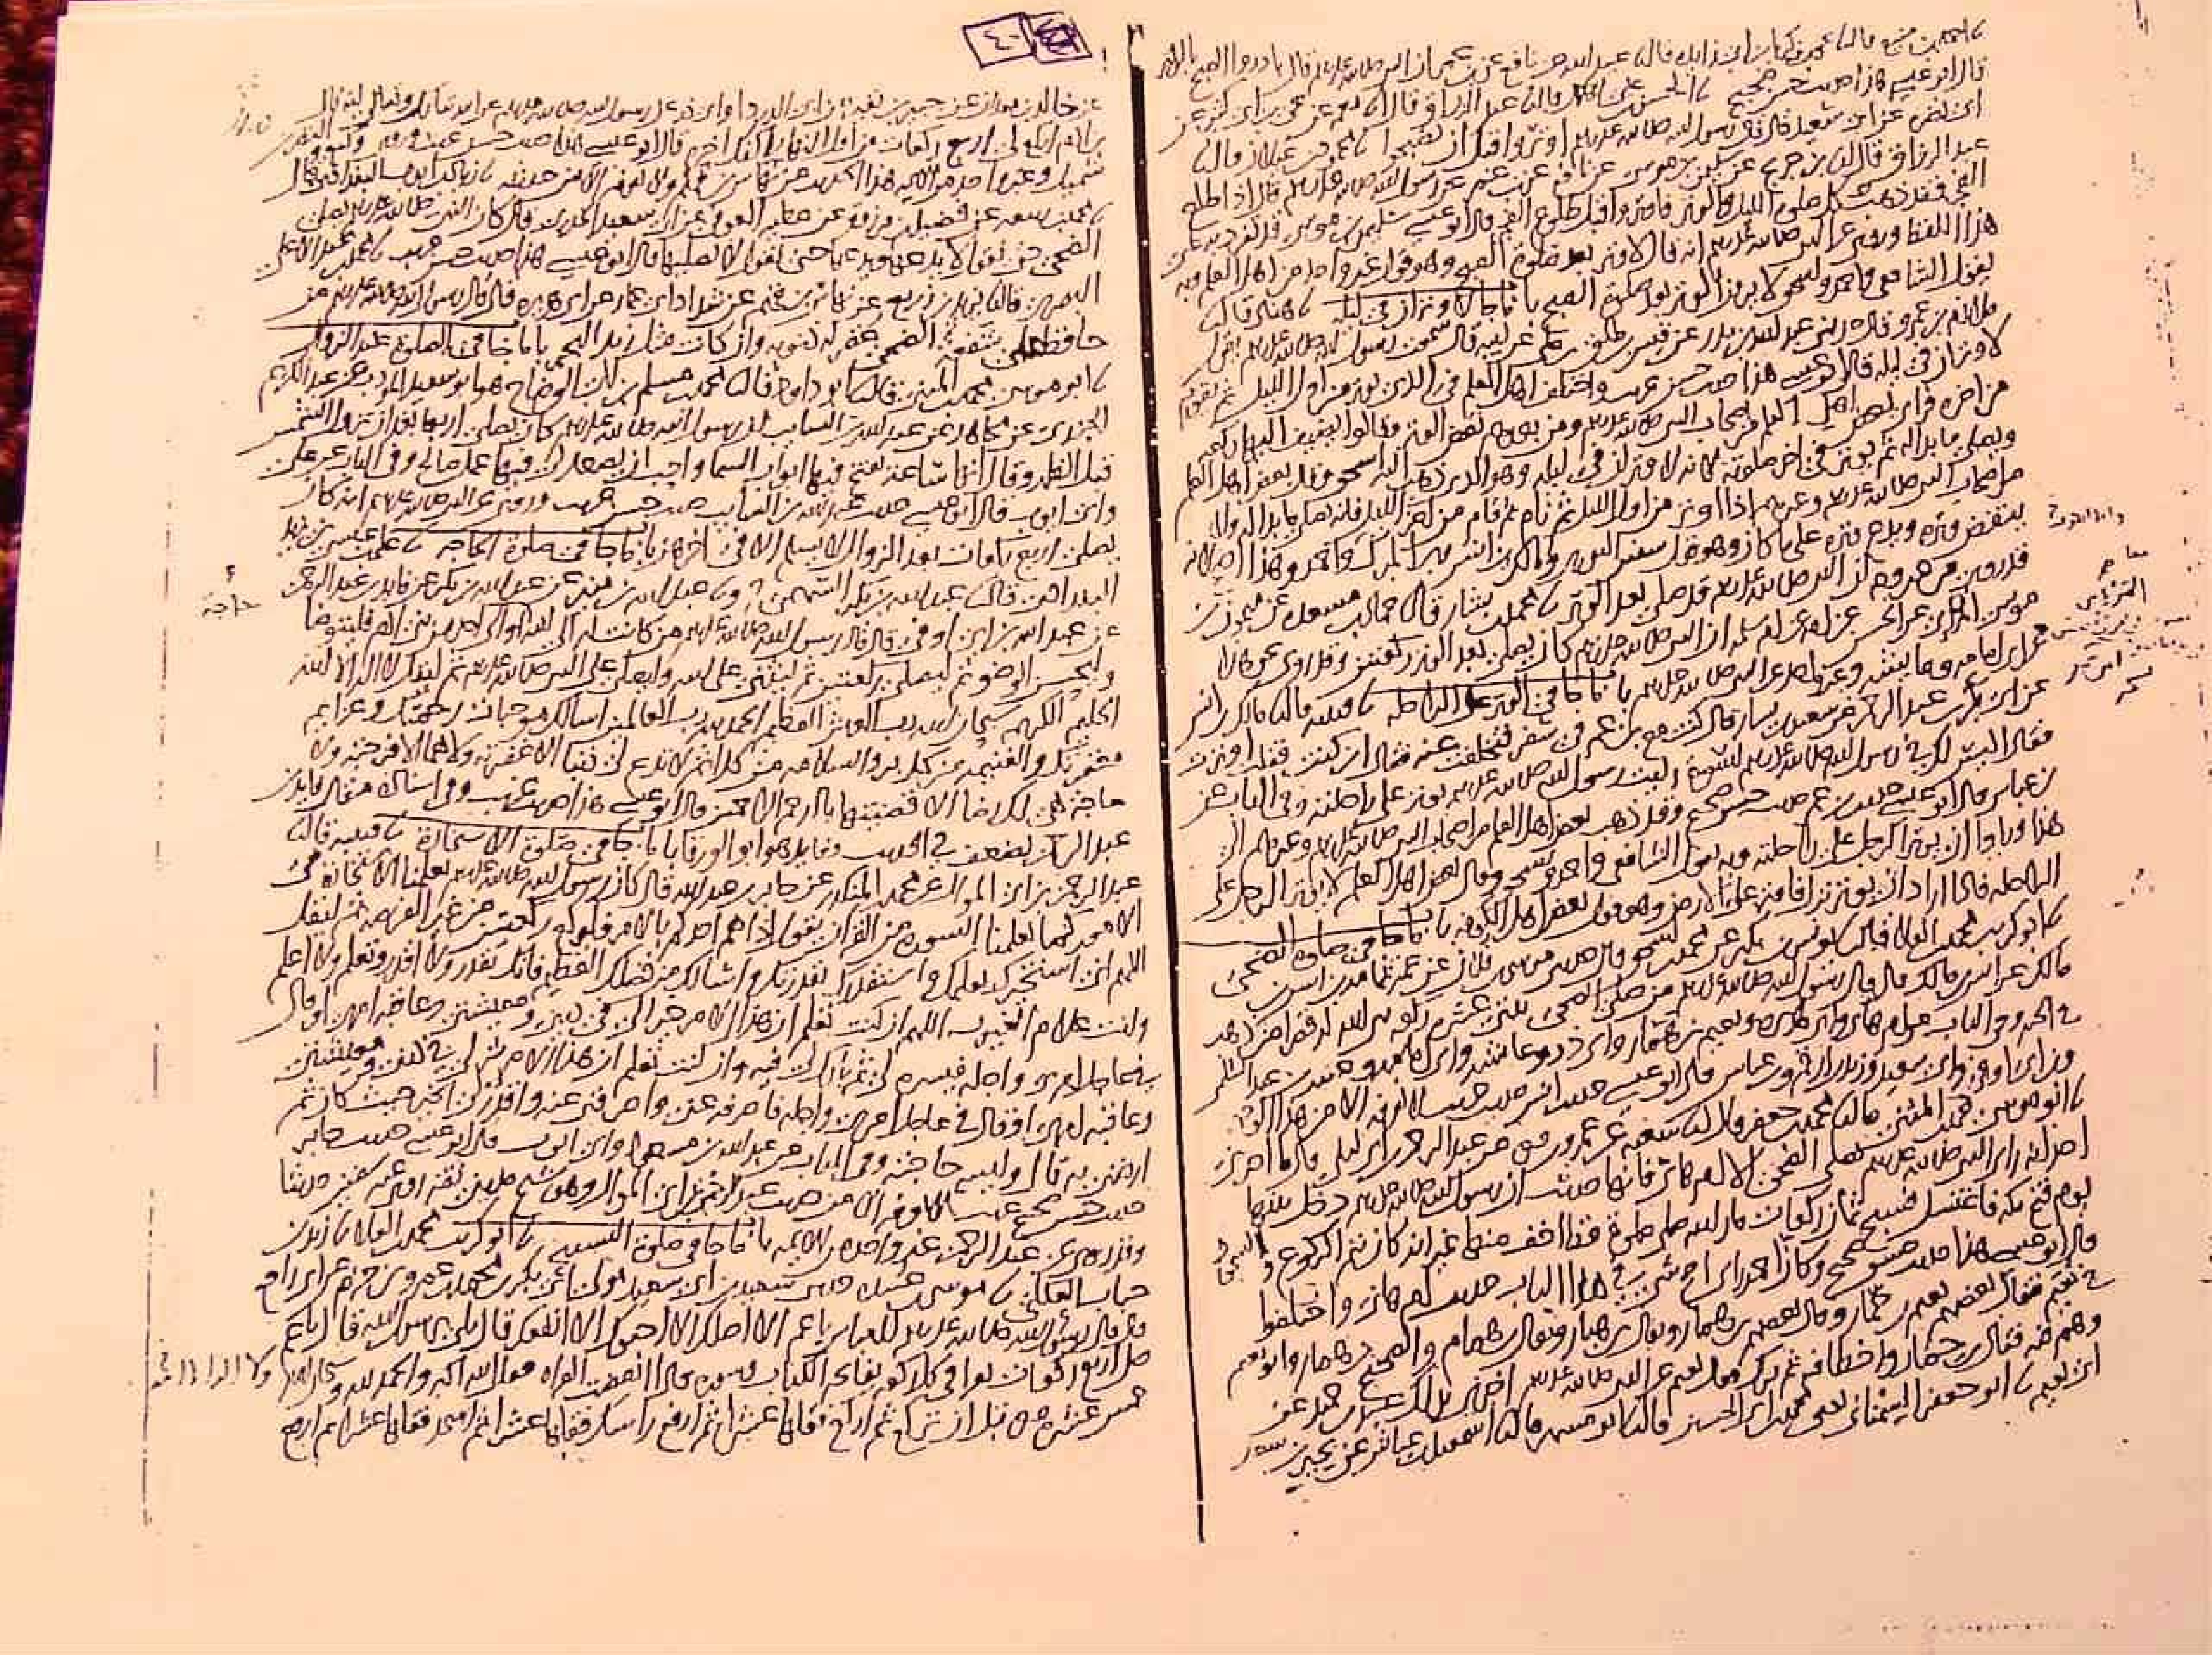 قال ابو عيسى هذا حديث حسن صحيح الحسن بن علي قال نا عبد الرزاق قال انا معمر عن يحيى بن ابي كثير عن
ابي نضره عن ابي سعيد قال قال رسول الله صلى الله عليه وسلم اوتروا قبل ان تصبحوا نا محمود بن غيلان قال نا
عبد الرزاق قال انا ابن جريج عن سليمن بن موسى عن نافع عن ابن عمر عن رسول الله صلى الله عليه وسلم قال اذا طلع
الفجر فقد ذهب كل صلوة الليل والوتر فاوتروا قبل طلوع الفجر قال ابو عيسى سليمن بن موسى قد تفرد به على
هذا اللفظ وروي عن النبي صلى الله عليه وسلم انه قال لا وتر بعد صلوة الصبح وهو قول غير واحد من اهل العلم وبه
يقول الشافعي واحمد واسحق لا يرون الوتر بعد صلوة الصبح باب ما جا لا وتران في ليلة نا هناد قال نا
ملازم بن عمرو قال حدثني عبد الله بن بدر عن قيس بن طلق بن علي عن ابيه قال سمعت رسول الله صلى الله عليه وسلم يقول
لا وتران في ليلة قال ابو عيسى هذا حديث حسن غريب واختلف اهل العلم في الذي يوتر من اول الليل ثم يقوم
من اخره فراى بعض اهل العلم من اصحاب النبي صلى الله عليه وسلم ومن بعدهم نقض الوتر وقالوا يضيف اليها ركعة
ويصلي ما بدا له ثم يوتر في اخر صلوته لانه لا وتران في ليلة وهو الذي ذهب اليه اسحق وقال بعض اهل العلم
من اصحاب النبي صلى الله عليه وسلم وغيرهم اذا اوتر من اول الليل ثم نام ثم قام من اخر الليل فانه يصلي ما بدا له ولا
ينقض وتره ويدع وتره على ما كان وهو قول سفين الثوري ومالك بن انس وابن المبرك واحمد وهذا اصح لانه
قد روي من غير وجه ان النبي صلى الله عليه وسلم قد صلى بعد الوتر نا محمد بن بشار قال نا حماد بن مسعدة عن ميمون بن
موسى المرائي عن الحسن عن امه عن ام سلمة ان النبي صلى الله عليه وسلم كان يصلي بعد الوتر ركعتين وقد روي نحو هذا
عن ابي امامة وعايشة وغير واحد عن النبي صلى الله عليه وسلم باب ما جا في الوتر على الراحلة نا قتيبة قال نا مالك بن انس
عن ابي بكر بن عبد الرحمن عن سعيد بن يسار قال كنت مع ابن عمر في سفر فتخلفت عنه فقال اين كنت فقلت اوترت
فقال اليس لك في رسول الله صلى الله عليه وسلم اسوة رايت رسول الله صلى الله عليه وسلم يوتر على راحلته وفي الباب عن
ابن عباس قال ابو عيسى حديث ابن عمر حديث حسن صحيح وقد ذهب بعض اهل العلم من اصحاب النبي صلى الله عليه وسلم وغيرهم الى
هذا وراوا ان يوتر الرجل على راحلته وبه يقول الشافعي واحمد واسحق وقال بعض اهل العلم لا يوتر الرجل على
الراحلة فاذا اراد ان يوتر نزل فاوتر على الارض وهو قول بعض اهل الكوفة باب ما جا في صلوة الضحى
نا ابو كريب محمد بن العلا قال نا يونس بن بكير عن محمد بن اسحق قال حدثني موسى بن فلان بن انس عن عمه ثمامة بن انس بن
مالك عن انس بن مالك قال قال رسول الله صلى الله عليه وسلم من صلى الضحى ثنتي عشرة ركعة بنى الله له قصرا من ذهب
في الجنة وفي الباب عن ام هانئ وابي هريرة ونعيم بن همار وابي ذر وعايشة وابي امامة وعتبة بن عبد السلمي
وابن ابي اوفى وابي سعيد وزيد بن ارقم وابن عباس قال ابو عيسى حديث انس حديث غريب لا نعرفه الا من هذا الوجه
نا ابو موسى محمد بن المثنى قال نا محمد بن جعفر قال نا شعبة عن عمرو بن مرة عن عبد الرحمن بن ابي ليلى قال ما اخبرني
احد انه راى النبي صلى الله عليه وسلم يصلي الضحى الا ام هانئ فانها حدثت ان رسول الله صلى الله عليه وسلم دخل بيتها
يوم فتح مكة فاغتسل فسبح ثمان ركعات ما رايته صلى صلوة قط اخف منها غير انه كان يتم الركوع والسجود
قال ابو عيسى هذا حديث حسن صحيح وكان احمد راى اصح شيء في هذا الباب حديث ام هانئ واختلفوا
في نعيم فقال بعضهم نعيم بن خمار وقال بعضهم بن همار ويقال بن هبار ويقال بن همام والصحيح بن همار وابو نعيم
وهم فيه فقال بن خمار واخطا فيه ثم ترك فقال نعيم عن النبي صلى الله عليه وسلم اخبرني بذلك عبد بن حميد عن
ابي نعيم نا ابو جعفر السمناني نا محمد بن ابي الحسين قال نا ابو مسهر قال نا اسمعيل بن عياش عن بحير بن سعد
٤٠
عن خالد بن معدان عن جبير بن نفير عن ابي الدردا وابي ذر عن رسول الله صلى الله عليه وسلم عن الله تبارك وتعالى انه قال
بن ادم اركع لي اربع ركعات من اول النهار اكفك اخره قال ابو عيسى هذا حديث حسن غريب وروى وكيع والنضر بن
شميل وغير واحد من الايمة هذا الحديث عن نهاس بن قهم ولا نعرفه الا من حديثه نا زياد بن ايوب البغدادي قال
نا محمد بن ربيعة عن فضيل بن مرزوق عن عطية العوفي عن ابي سعيد الخدري قال كان النبي صلى الله عليه وسلم يصلي
الضحى حتى نقول لا يدعها ويدعها حتى نقول لا يصليها قال ابو عيسى هذا حديث حسن غريب نا محمد بن عبد الاعلى
البصري قال نا يزيد بن زريع عن نهاس بن قهم عن شداد ابي عمار عن ابي هريرة قال قال رسول الله صلى الله عليه وسلم من
حافظ على شفعة الضحى غفر له ذنوبه وان كانت مثل زبد البحر باب ما جا في الصلوة عند الزوال
نا ابو موسى محمد بن المثنى قال نا ابو داود قال نا محمد بن مسلم بن ابي الوضاح هو ابو سعيد المودب عن عبد الكريم
الجزري عن مجاهد عن عبد الله بن السايب ان رسول الله صلى الله عليه وسلم كان يصلي اربعا بعد ان تزول الشمس
قبل الظهر وقال انها ساعة تفتح فيها ابواب السما واحب ان يصعد لي فيها عمل صالح وفي الباب عن علي
وابي ايوب قال ابو عيسى حديث عبد الله بن السايب حديث حسن غريب وروي عن النبي صلى الله عليه وسلم انه كان
يصلي اربع ركعات بعد الزوال لا يسلم الا في اخرهن باب ما جا في صلوة الحاجة نا علي بن عيسى بن يزيد
البغدادي قال نا عبد الله بن بكر السهمي ونا عبد الله بن منير عن عبد الله بن بكر عن فايد بن عبد الرحمن
عن عبد الله بن ابي اوفى قال قال رسول الله صلى الله عليه وسلم من كانت له الى الله او الى احد من بني ادم فليتوضا
وليحسن الوضو ثم ليصلي ركعتين ثم ليثني على الله وليصل على النبي صلى الله عليه وسلم ثم ليقل لا اله الا الله
الحليم الكريم سبحان الله رب العرش العظيم الحمد لله رب العالمين اسالك موجبات رحمتك وعزايم
مغفرتك والغنيمة من كل بر والسلامة من كل اثم لا تدع لي ذنبا الا غفرته ولا هما الا فرجته ولا
حاجة هي لك رضا الا قضيتها يا ارحم الراحمين قال ابو عيسى هذا حديث غريب وفي اسناده مقال فايد بن
عبد الرحمن يضعف في الحديث وفايد هو ابو الورقا باب ما جا في صلوة الاستخارة نا قتيبة قال نا
عبد الرحمن بن ابي الموال عن محمد بن المنكدر عن جابر بن عبد الله قال كان رسول الله صلى الله عليه وسلم يعلمنا الاستخارة في
الامور كما يعلمنا السورة من القران يقول اذا هم احدكم بالامر فليركع ركعتين من غير الفريضة ثم ليقل
اللهم اني استخيرك بعلمك واستقدرك بقدرتك واسالك من فضلك العظيم فانك تقدر ولا اقدر وتعلم ولا اعلم
وانت علام الغيوب اللهم ان كنت تعلم ان هذا الامر خير لي في ديني ومعيشتي وعاقبة امري او قال
في عاجل امري واجله فيسره لي ثم بارك لي فيه وان كنت تعلم ان هذا الامر شر لي في ديني ومعيشتي
وعاقبة امري او قال في عاجل امري واجله فاصرفه عني واصرفني عنه واقدر لي الخير حيث كان ثم
ارضني به قال ويسمي حاجته وفي الباب عن عبد الله بن مسعود وابي ايوب قال ابو عيسى حديث جابر
حديث حسن صحيح غريب لا نعرفه الا من حديث عبد الرحمن بن ابي الموال وهو شيخ مديني ثقة روى عنه سفين حديثا
وقد روى عن عبد الرحمن غير واحد من الايمة باب ما جا في صلوة التسبيح نا ابو كريب محمد بن العلا نا زيد بن
حباب العكلي نا موسى بن عبيدة حدثني سعيد بن ابي سعيد مولى ابي بكر بن محمد بن عمرو بن حزم عن ابي رافع
قال قال رسول الله صلى الله عليه وسلم للعباس يا عم الا اصلك الا احبوك الا انفعك قال بلى يرسول الله قال يا عم
صل اربع ركعات تقرا في كل ركعة بفاتحة الكتاب وسورة فاذا انقضت القراة فقل الله اكبر والحمد لله وسبحان الله ولا اله الا الله
خمس عشرة مرة قبل ان تركع ثم اركع فقلها عشرا ثم ارفع راسك فقلها عشرا ثم اسجد فقلها عشرا ثم ارفع
حاجة